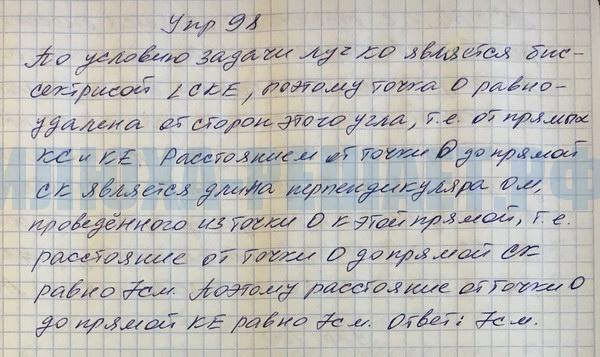 Упр 98
По условию задачи луч КО является бис-
сектрисой ∠СКЕ, поэтому точка О равно-
удалена от сторон этого угла, т.е. от прямых
КС и КЕ. Расстоянием от точки О до прямой
СК является длина перпендикуляра ОМ,
проведённого из точки О к этой прямой, т.е.
расстояние от точки О до прямой СК
равно 7см. Поэтому расстояние от точки О
до прямой КЕ равно 7см. Ответ: 7см.